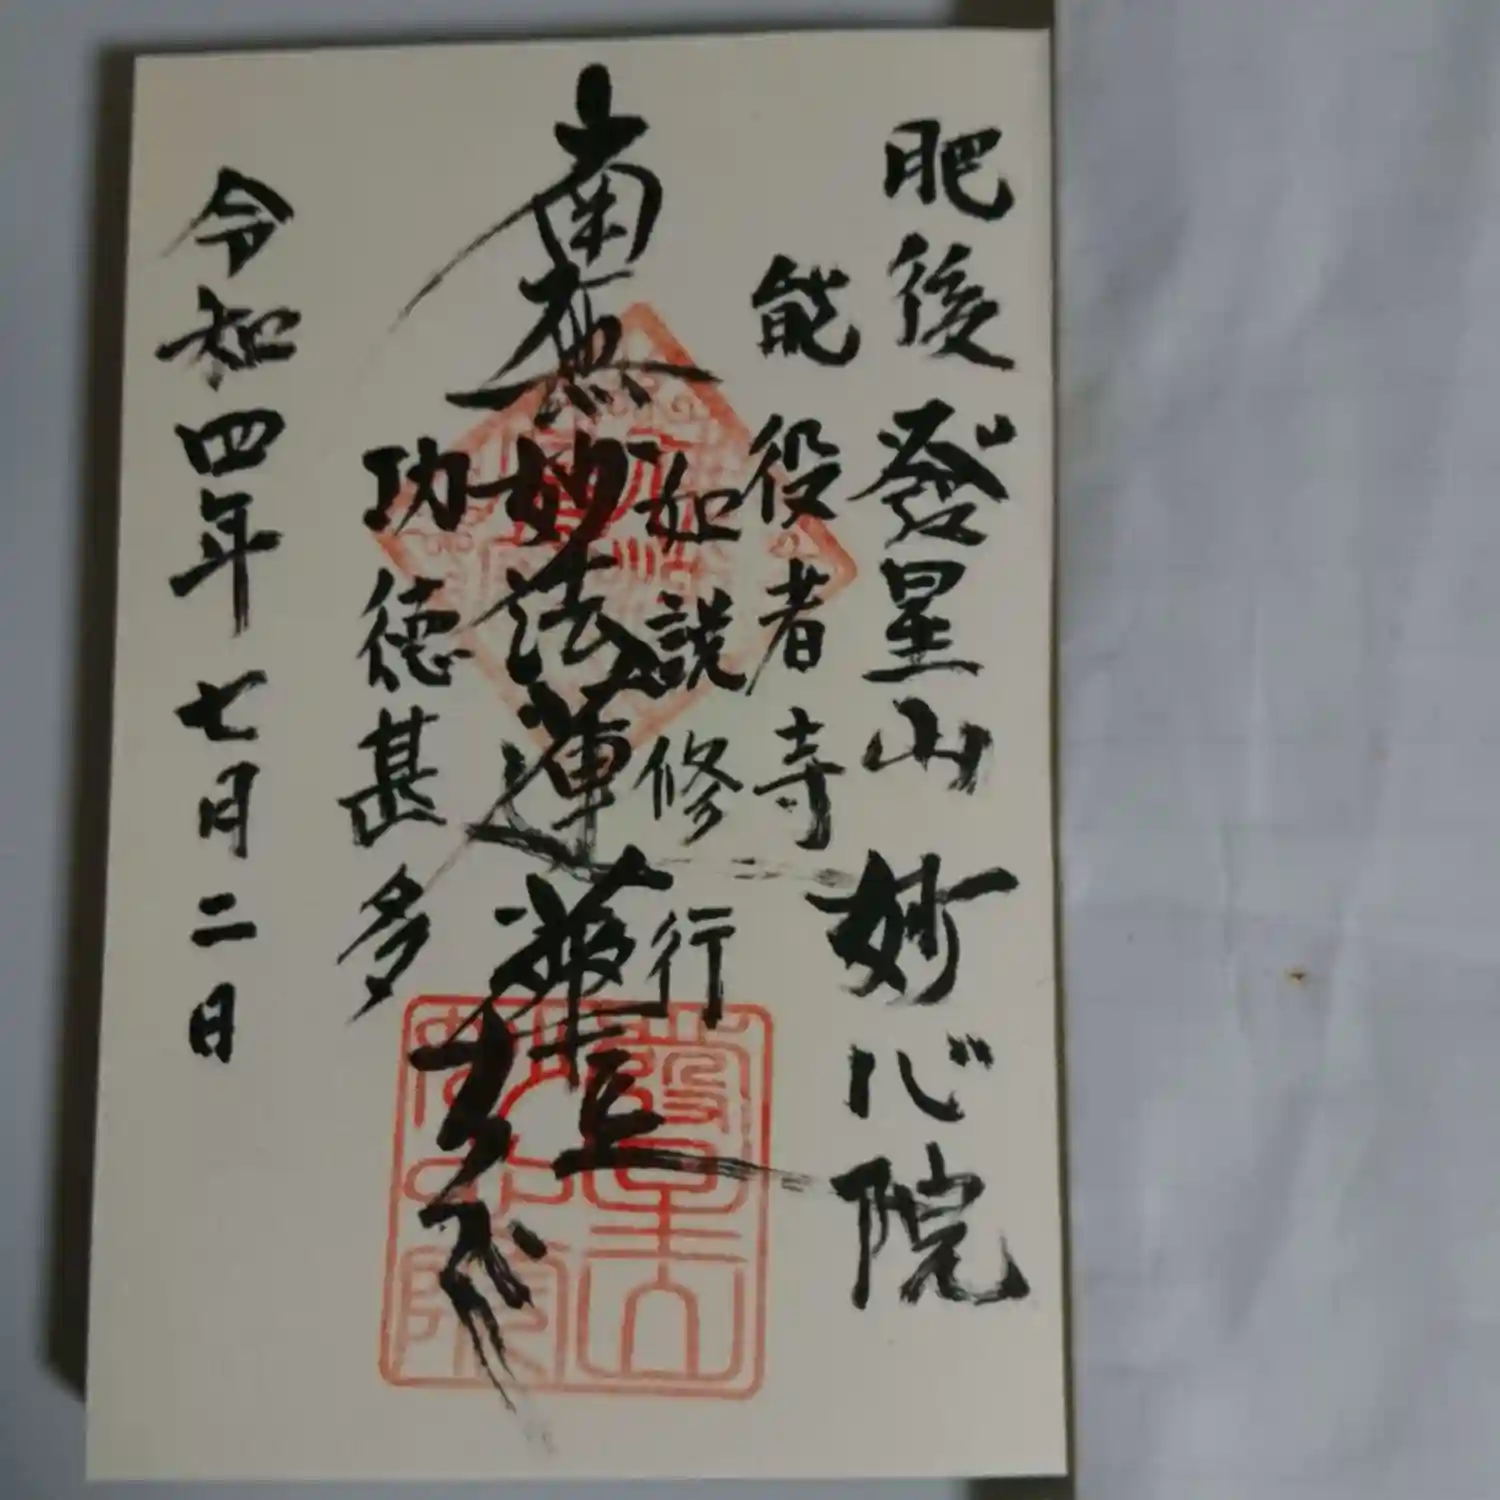 肥後發星山妙心院
能役者寺
如説修行
南無妙法蓮華経
功徳甚多
令和四年七月二日